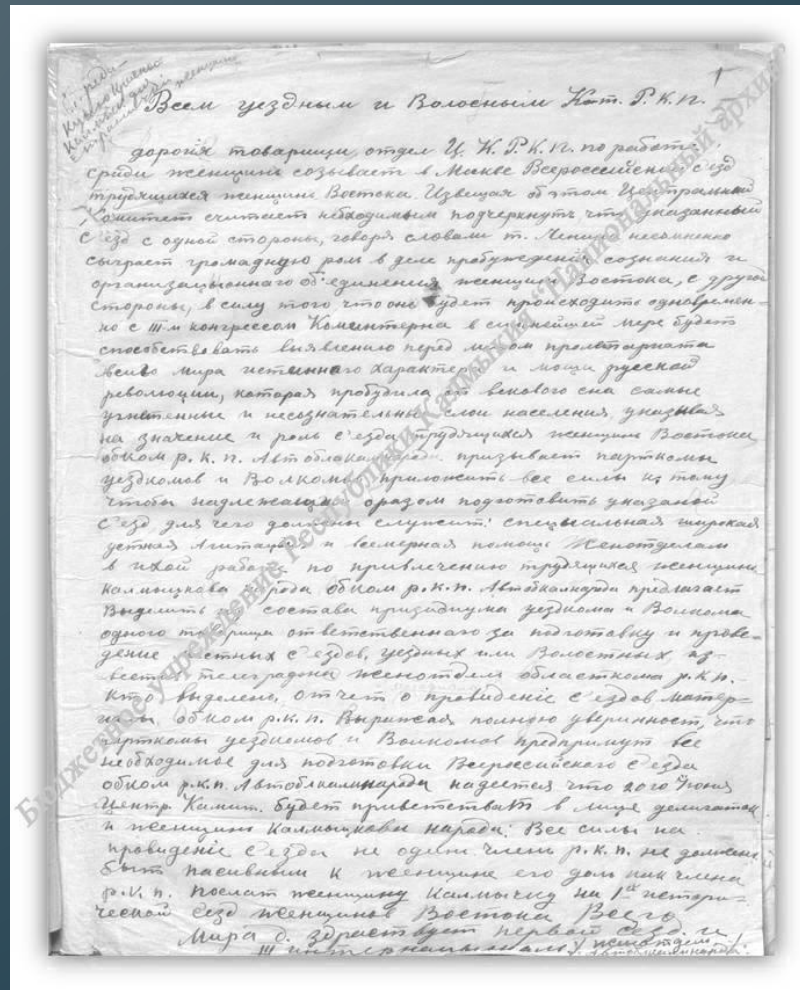 1
Всем уездным и Волосным Ком. Р.К.П.
дорогія товарищи, отдел Ц.К.Р.К.П. по работе
среди женщинъ созывает в Москве Всероссийский с'езд
трудящихся женщинъ Востока. Извещая об этом Центральный
Комитет считает небходимым подчеркнуть что указанный
С'езд с одной стороны, говоря словами т. Ленина несомненно
сыграет громадную роль в деле пробуждения сознания и
организационного об'единения женщин Востока, с другой
стороны, в силу того что онъ будет происходить одновремен-
но с III-м конгрессом Коминтерна в сильнейшей мере будет
способствовать выявлению перед лицом пролетариата
всего мира истинного характера и мощи русской
революции, которая пробудила от векового сна самые
угнетенные и несознательные слои населения, указывая
на значение и роль с'езда трудящихся женщин Востока
обком р.к.п. Автоблкалмнарода призывает парткомы
уездкомов и Волкомов приложить все силы к тому
чтобы надлежащим оразом подготовить указаной
С'езд для чего должны служит: специальная широкая
устная агитация и всемерная помощь Женотделам
в ихой работе по привлечению трудящихся женщинъ
калмыцкова народа, обком р.к.п. Автоблкалмнарода предлагает
Выделить из состава призидиума уездкома и Волкома
одного товарища ответственнаго за подготовку и прове-
дение местных с'ездов, уездных или Волостных, из-
вестить телеграфом женотдел областкома р.к.п.
кто выделено, отчет о проведеніе с'ездов матер-
иалы обком р.к.п. Выражая полную уверинност, что
парткомы уездкомов и Волкомов предпримут все
необходимое для подготовки Всероссийского с'езда
обком р.к.п. Автоблкалмнарода надеется что 20го Июня
Центр. Комит. будет приветствоват в лице делигаток
и женщинъ калмыцкова народа: Все силы на
проведеніе с'езда не один членъ р.к.п. не должен
быт пасивным к женщине его долг как члена
р.к.п. послат женщину калмычку на 1й истори-
ческой с'езд женщинъ Востока Всего
Мира д. здраствует первой с'езд и
III интернационал!
Бюджетное учреждение Республики Калмыкия "Национальный архив"